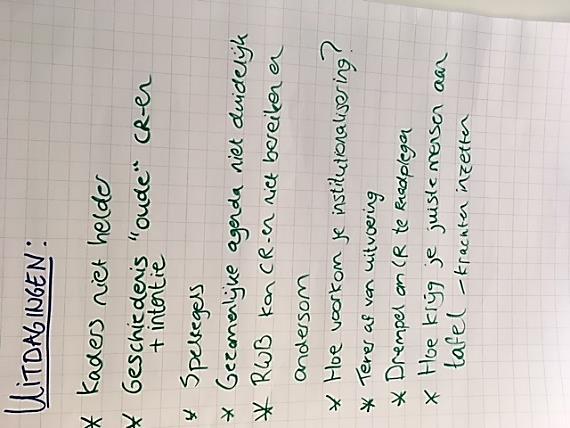 UITDAGINGEN:
* Kaders niet helder
* Geschiedenis "oude" CR-en
+ intentie
* Spelregels
* Gezamenlijke agenda niet duidelijk
* RWB kan CR-en niet bereiken en
andersom
* Hoe voorkom je institutionalisering?
* Teres af van uitvoering
* Drempel om CR te raadplegen
* Hoe krijg je juiste mensen aan
tafel - krachten inzetten